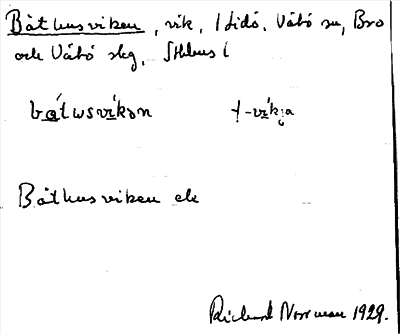 Båthusviken, vik, Lidö, Vätö sn, Bro
och Vätö skg, Sthlms l
bátusvíkən †-víkja
Båthusviken ek
Richard Norrman 1929.